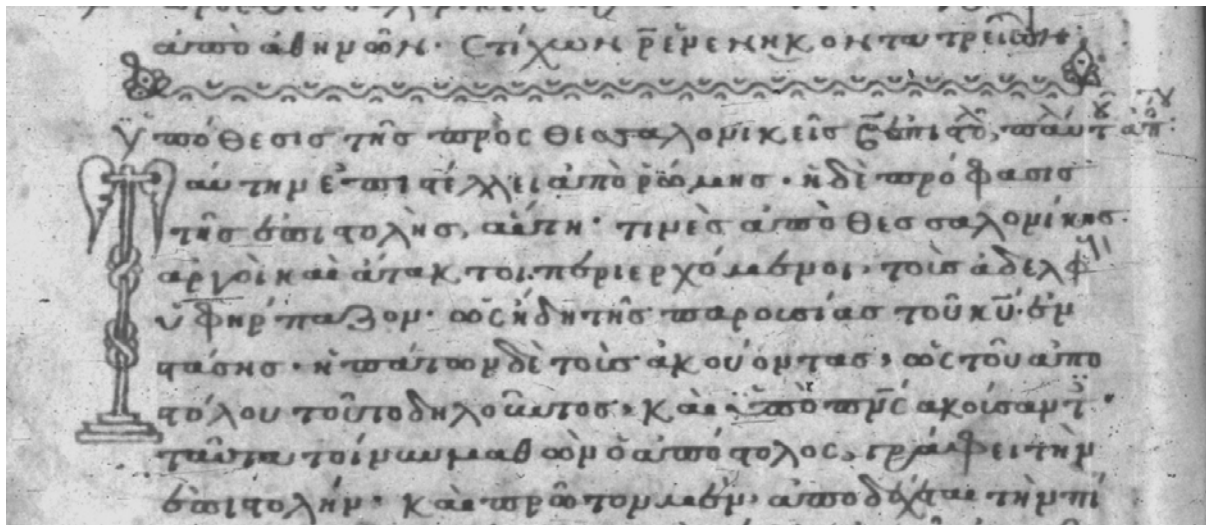 ἀπὸ ἀθηνῶν· στίχων ρ̅ ἐνενηκοντατρεῖς·
Ὑπόθεσις τῆς πρὸς θεσσαλονικεῖς β̅ ἐπιστολ παύλου ἀπο
αὐτὴν ἐπιστέλλει ἀπὸ ῥώμης· ἡ δὲ πρόφασις
τῆς ἐπιστολῆς, αὕτη· τινὲς ἀπὸ θεσσαλονίκης
ἀργοὶ καὶ ἄτακτοι. περιερχόμενοι, τοῖς ἀδελφ
ὑφήρπαζον· ὡς ἤδη τῆς παροισίας τοῦ κ̅υ̅· ἐν
τάσης· ἠπάτων δὲ τοῖς ἀκούοντας, ὡς τοῦ ἀπο
τόλου τοῦτο δηλοῦντος· καὶ ἀκοίσαντ
ταῦτα τοίνυν μαθὼν ὁ ἀπόστολος, γράφει τὴν
ἐπιστολήν· καὶ πρῶτον μὲν, ἀποδέχεται τὴν πί